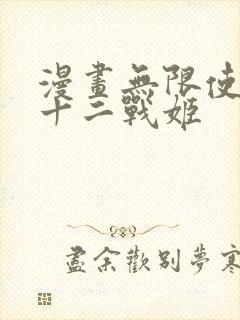 漫畫無限使
十二戰姬
盡余歡別夢寒